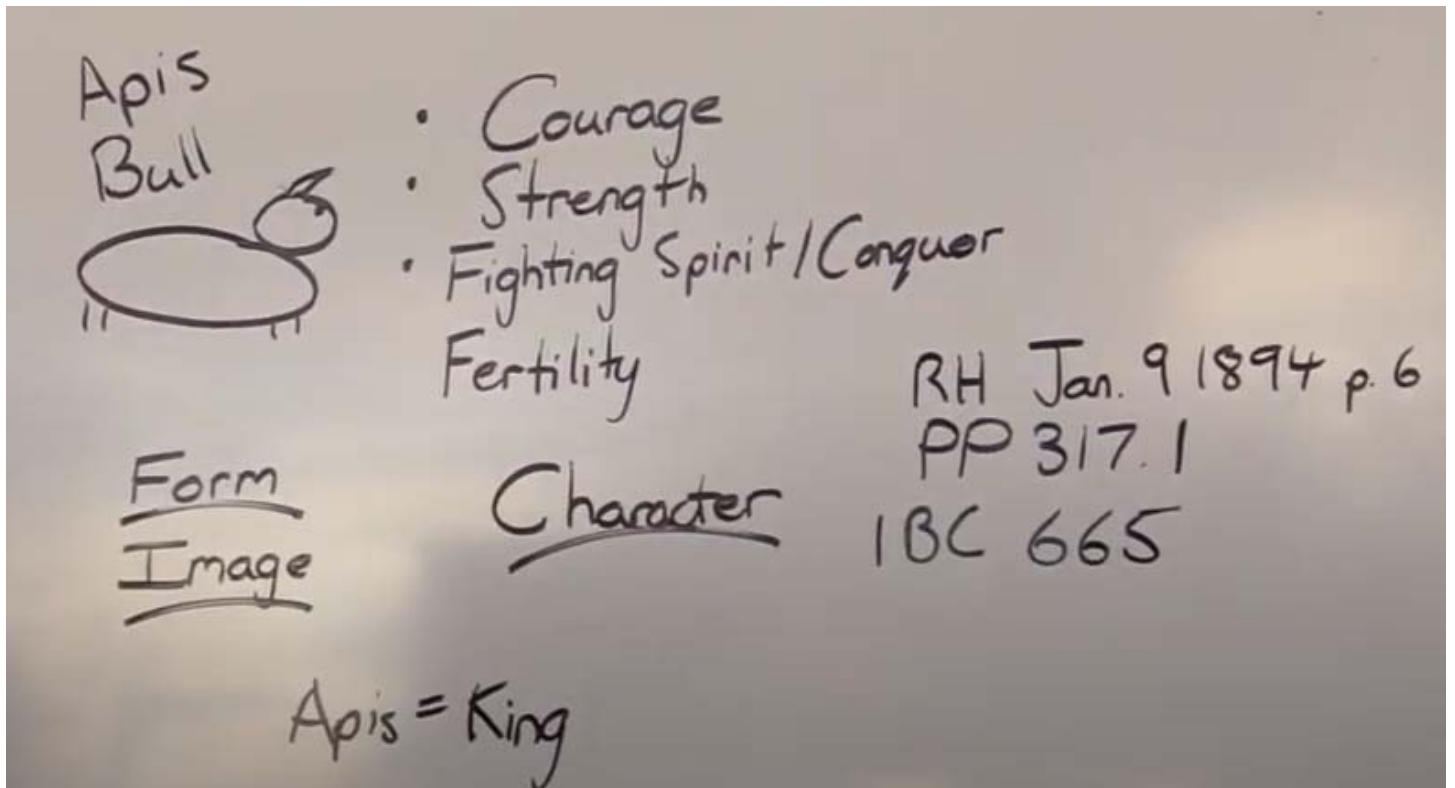 Apis
Bull
• Courage
• Strength
• Fighting Spirit/Conquer
Fertility
RH Jan. 9 1894 p. 6
PP 317.1
1BC 665
Form
Image
Character
Apis = King